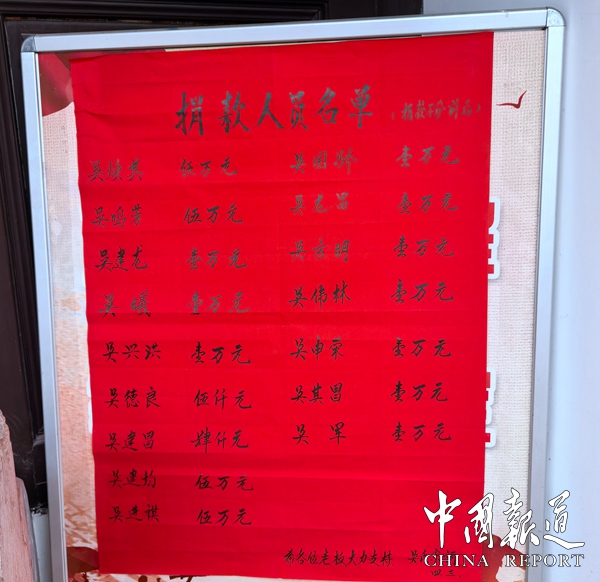 捐款人员名单（捐款不分前后）
吴 伍万元 吴国 壹万元
吴鸿 伍万元 吴 昌 壹万元
吴建龙 壹万元 吴 明 壹万元
吴曦 壹万元 吴伟林 壹万元
吴兴洪 壹万元 吴申荣 壹万元
吴德良 伍仟元 吴其昌 壹万元
吴建昌 肆仟元 吴军 壹万元
吴建均 伍万元
吴建祺 伍万元
各位老板大力支持 吴
中国报道
CHINA REPORT